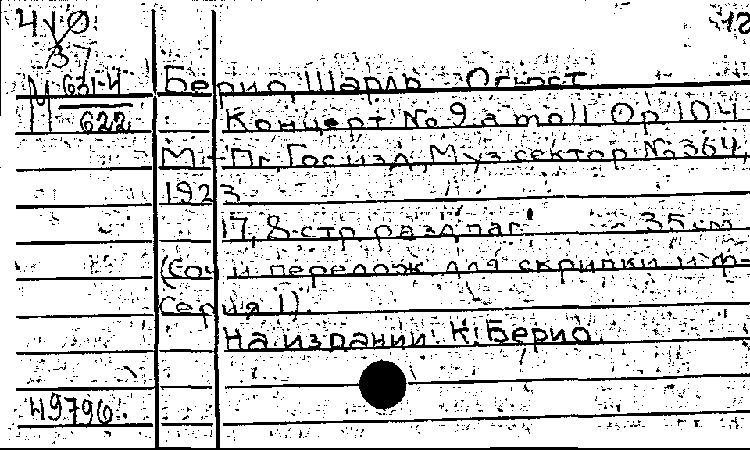 410
37
12
М 631-И
622
Берио, Шарль Огюст
Концерт № 9 a moll Op 104
М.-Пг, Госизд, Муз сектор № 364,
1923
17, 8 стр разд паг 35 см
(соч и перелож для скрипки и ф-
Серия 1).
На издании: К. Берио.
49796